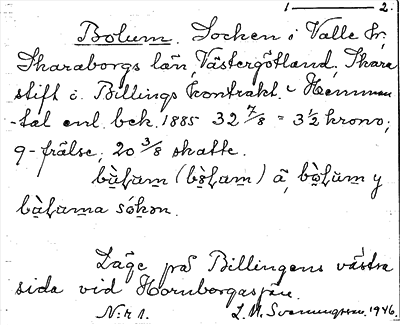 1 — 2.
Bolum. Socken i Valle hr,
Skaraborgs län, Västergötland, Skara
stift o. Billings kontrakt. Hemman-
-tal enl. bek. 1885 32 7/8 = 3 1/2 krono;
9 frälse; 20 3/8 skatte.
Läge på Billingens västra
sida vid Hornborgasjön.
N:r 1. L. M. Svenungsson. 1946.